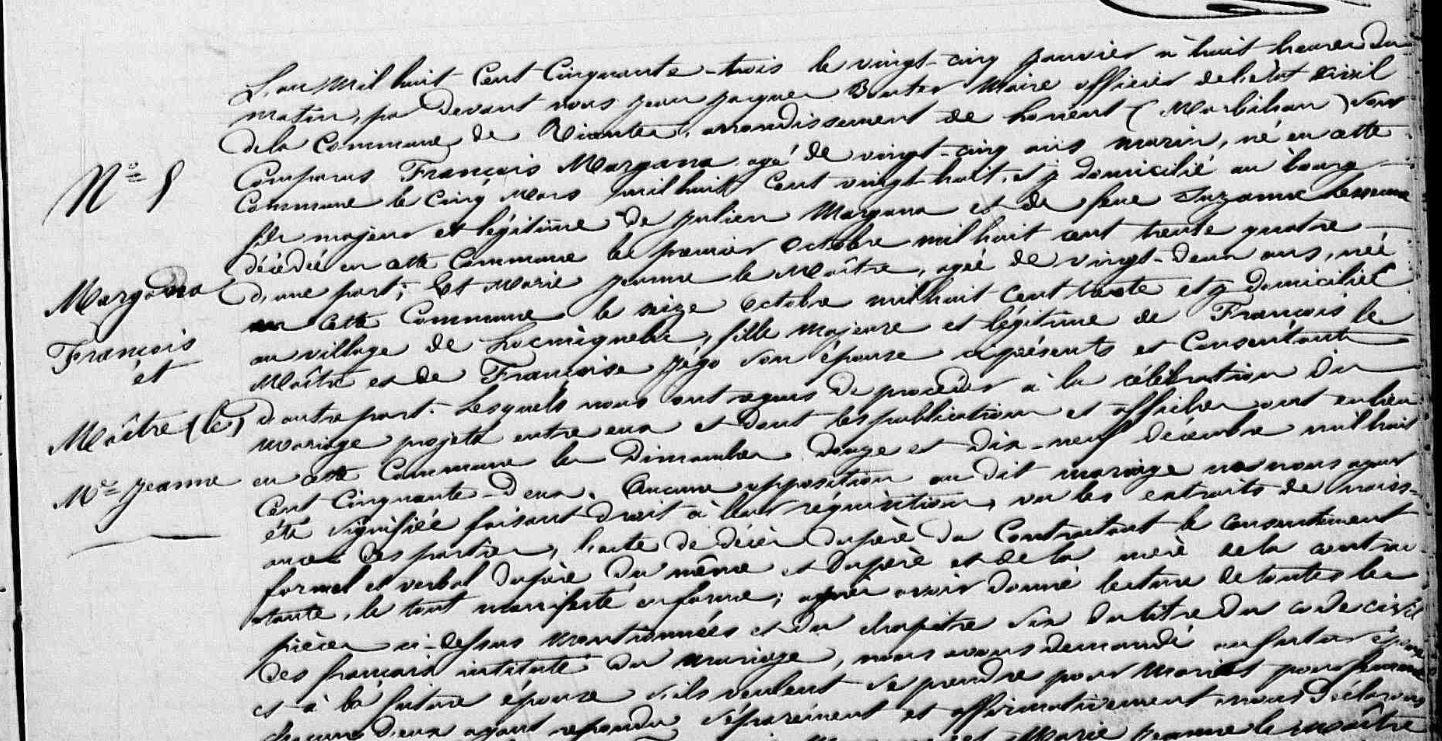 L'an mil huit Cent Cinquante-trois le vingt-cinq Janvier à huit heures du
matin, par devant nous Jean Jacques Maire officier de l'état civil
de la Commune de Riantec, arrondissement de Lorient (Morbihan) sont
N° 5
Comparus François Margana agé de vingt-cinq ans marin, né en cette
Commune le Cinq Mars mil huit Cent vingt huit, et y domicilié au bourg
fils majeur et légitime de Julien Margana et de feue Suzanne
décédée en cette Commune le premier Octobre mil huit cent trente quatre
Margana
d'une part; Et Marie Jeanne le Maître, agée de vingt-deux ans, née
en cette Commune le seize Octobre mil huit Cent trente et y domiciliée
François
au village de Locmiquelic, fille Majeure et légitime de François le
et
Maître et de Françoise Jégo son épouse ci présents et Consentants
Maître (le)
d'autre part. Lesquels nous ont requis de procéder à la célébration du
mariage projeté entre eux et dont les publications et affiches ont eu lieu
Me Jeanne
en cette Commune les Dimanches douze et Dix-neuf décembre mil huit
Cent Cinquante-deux. Aucune opposition au dit mariage ne nous ayant
été signifiée faisant droit à leur réquisition, vu les extraits de naiss-
ances des parties, l'acte de décès du père du Contractant le consentement
formel et verbal du père du même et du père et de la mère de la contrac
tante, le tout manifesté en forme; après avoir donné lecture de toutes les
pièces ci-dessus mentionnées et du chapitre six du titre du code civil
des français intitulé du mariage, nous avons demandé au futur époux
et à la future épouse s'ils veulent se prendre pour mari et pour femme
chacun d'eux ayant répondu séparément et affirmativement nous déclarons
et Marie Jeanne le Maître